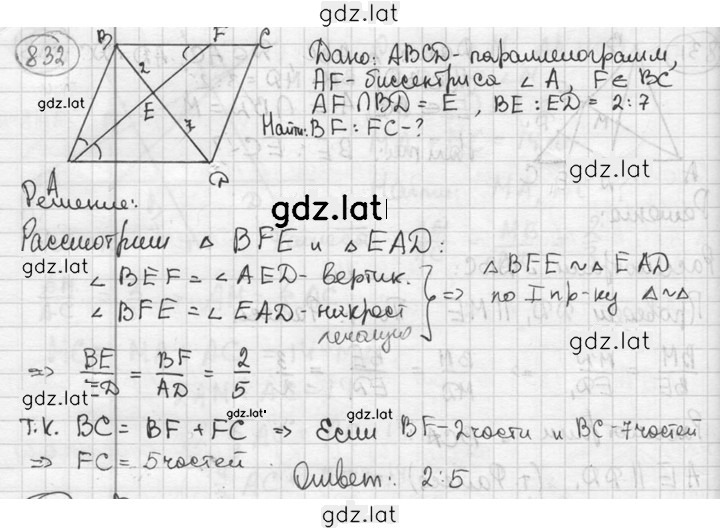 gdz.lat
832
B F C
2
E
7
A D
Дано: ABCD - параллелограмм,
gdz.lat
AF - биссектриса ∠ A, F ∈ BC
gdz.lat
AF ∩ BD = E, BE : ED = 2:7
Найти: BF : FC - ?
Решение:
gdz.lat
Рассмотрим △ BFE и △ EAD:
gdz.lat
∠ BEF = ∠ AED - вертик.
∠ BFE = ∠ EAD - накрест лежащие
⇒ △ BFE ~ △ EAD
по I пр-ку △~△
gdz.lat
⇒ BE/ED = BF/AD = 2/5
gdz.lat
gdz.lat
gdz.lat
Т.К. BC = BF + FC ⇒ Если BF - 2 части и BC - 7 частей
⇒ FC = 5 частей
Ответ: 2:5
gdz.lat